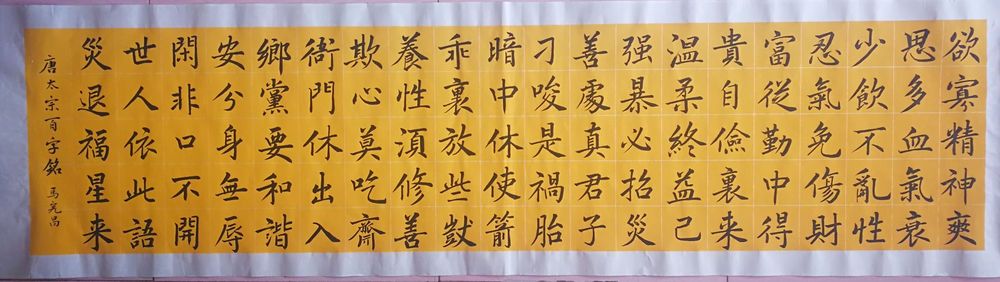 欲寡精神爽
思多血氣衰
少飲不亂性
忍氣免傷財
富從勤中得
貴自儉裏来
温柔終益己
强暴必招災
善處真君子
刁唆是禍胎
暗中休使箭
乖裏放些獃
養性須修善
欺心莫吃齋
衙門休出入
鄉黨要和諧
安分身無辱
閑非口不開
世人依此語
災退福星来
唐太宗百字銘 馬